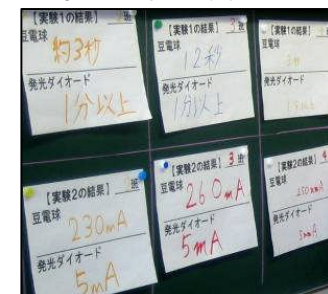 【実験1の結果】 班
豆電球
約3秒
発光ダイオード
1分以上
【実験1の結果】 3班
豆電球
12秒
発光ダイオード
1分以上
【実験1の結果】
豆電球
発光ダイオード
【実験2の結果】 班
豆電球
230mA
発光ダイオード
5mA
【実験2の結果】 3班
豆電球
260mA
発光ダイオード
5mA
【実験2の結果】 4
豆電球
250mA
発光ダイオード
5mA